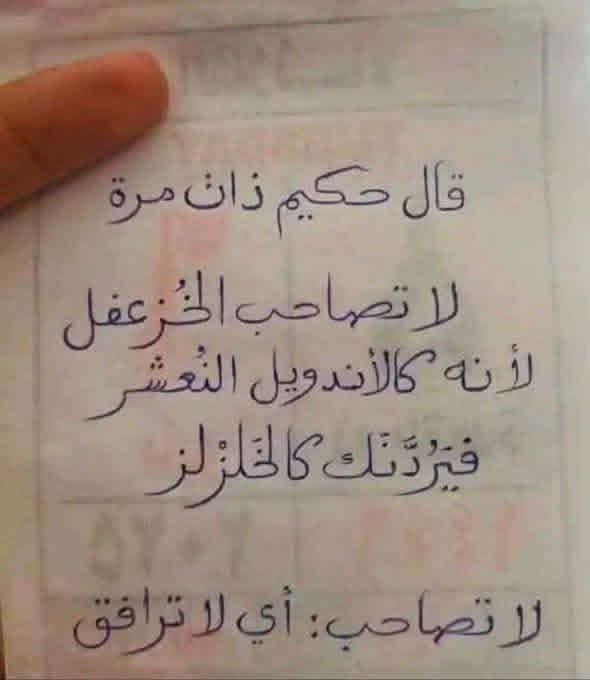 قال حكيم ذات مرة
لا تصاحب الخُزعفل
لأنه كالأندويل النُعشر
فيَرُدَّنَك كالخَلزْلز
لا تصاحب: أي لا ترافق